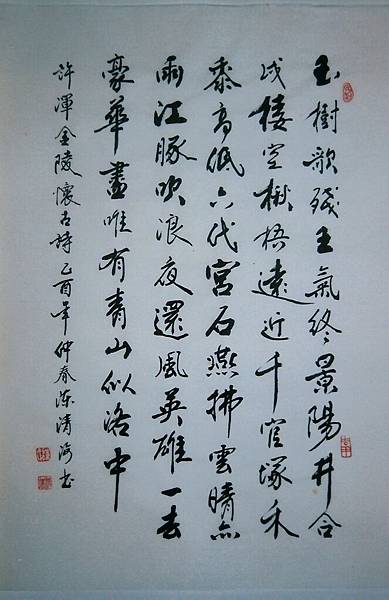 玉樹歌殘王氣終景陽井合
戍樓空楸梧遠近千官塚禾
黍高低六代宮石燕拂雲晴亦
雨江豚吹浪夜還風英雄一去
豪華盡唯有青山似洛中
許渾金陵懷古詩乙酉年仲春陈清海书